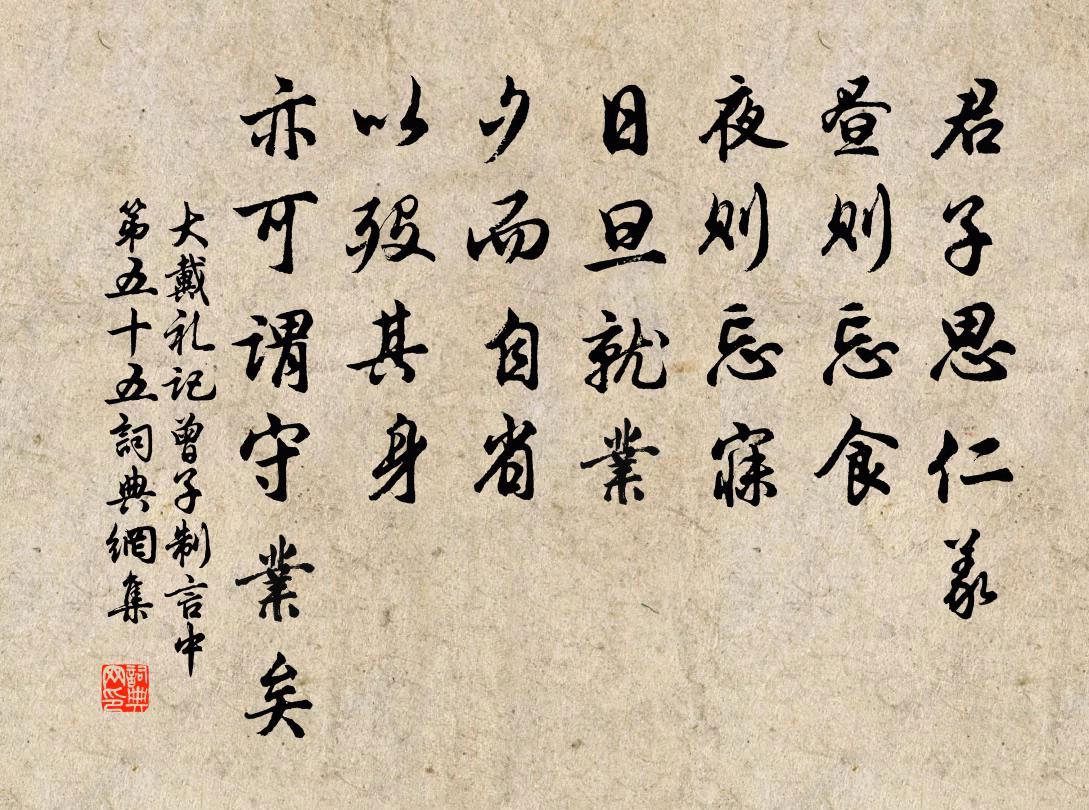 君子思仁義
昼則忘食
夜則忘寐
日旦就業
夕而自省
以殁其身
亦可謂守業矣
大戴礼記曾子制言中
第五十五詞典網集
詞典
网印